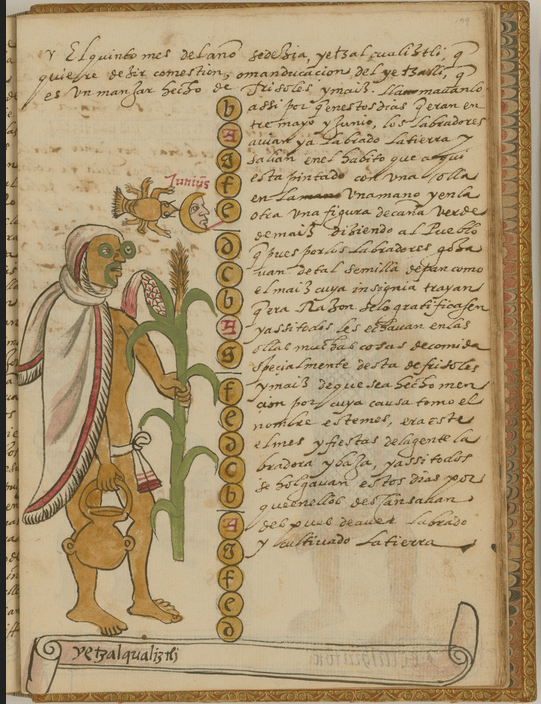 El quinto mes del año se dezia, yetzalqualiztli, q
quiere dezir comestion, o manducacion del yetzalli, q
es un manjar hecho de frisoles y maiz. llamauanlo
assi por q en estos dias q eran en
tre mayo y Junio, los labradores
auian ya labrado la tierra y
salian en el habito que aqui
esta pintado con una olla
en la una mano y en la
otra una figura de caña verde
de maiz diziendo al Pueblo
q pues por los labradores goza
uan de tal semilla como
el maiz cuya insignia trayan
q era Razon se lo gratificasen
y assi todos les echauan en las
ollas muchas cosas de comida
specialmente desta de frisoles
y maiz de que sea hecho men
cion por cuya causa tomo el
nombre este mes, era este
el mes y fiestas de la gente la
bradora y baxa, y assi todos
se holgauan estos dias por
que en ellos descansauan
del de auer labrado
y cultiuado la tierra
Junius
b
A
g
f
e
d
c
b
A
g
f
e
d
c
b
A
g
f
e
d
yetzalqualiztli